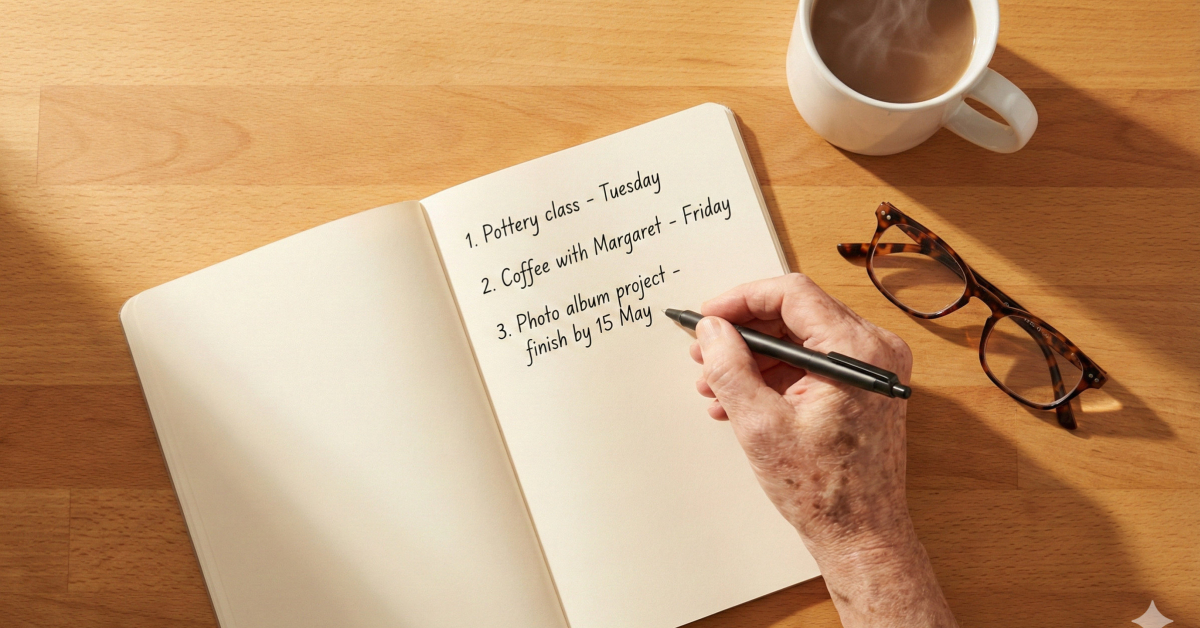 1. Pottery class - Tuesday
2. Coffee with Margaret - Friday
3. Photo album project -
finish by 15 May